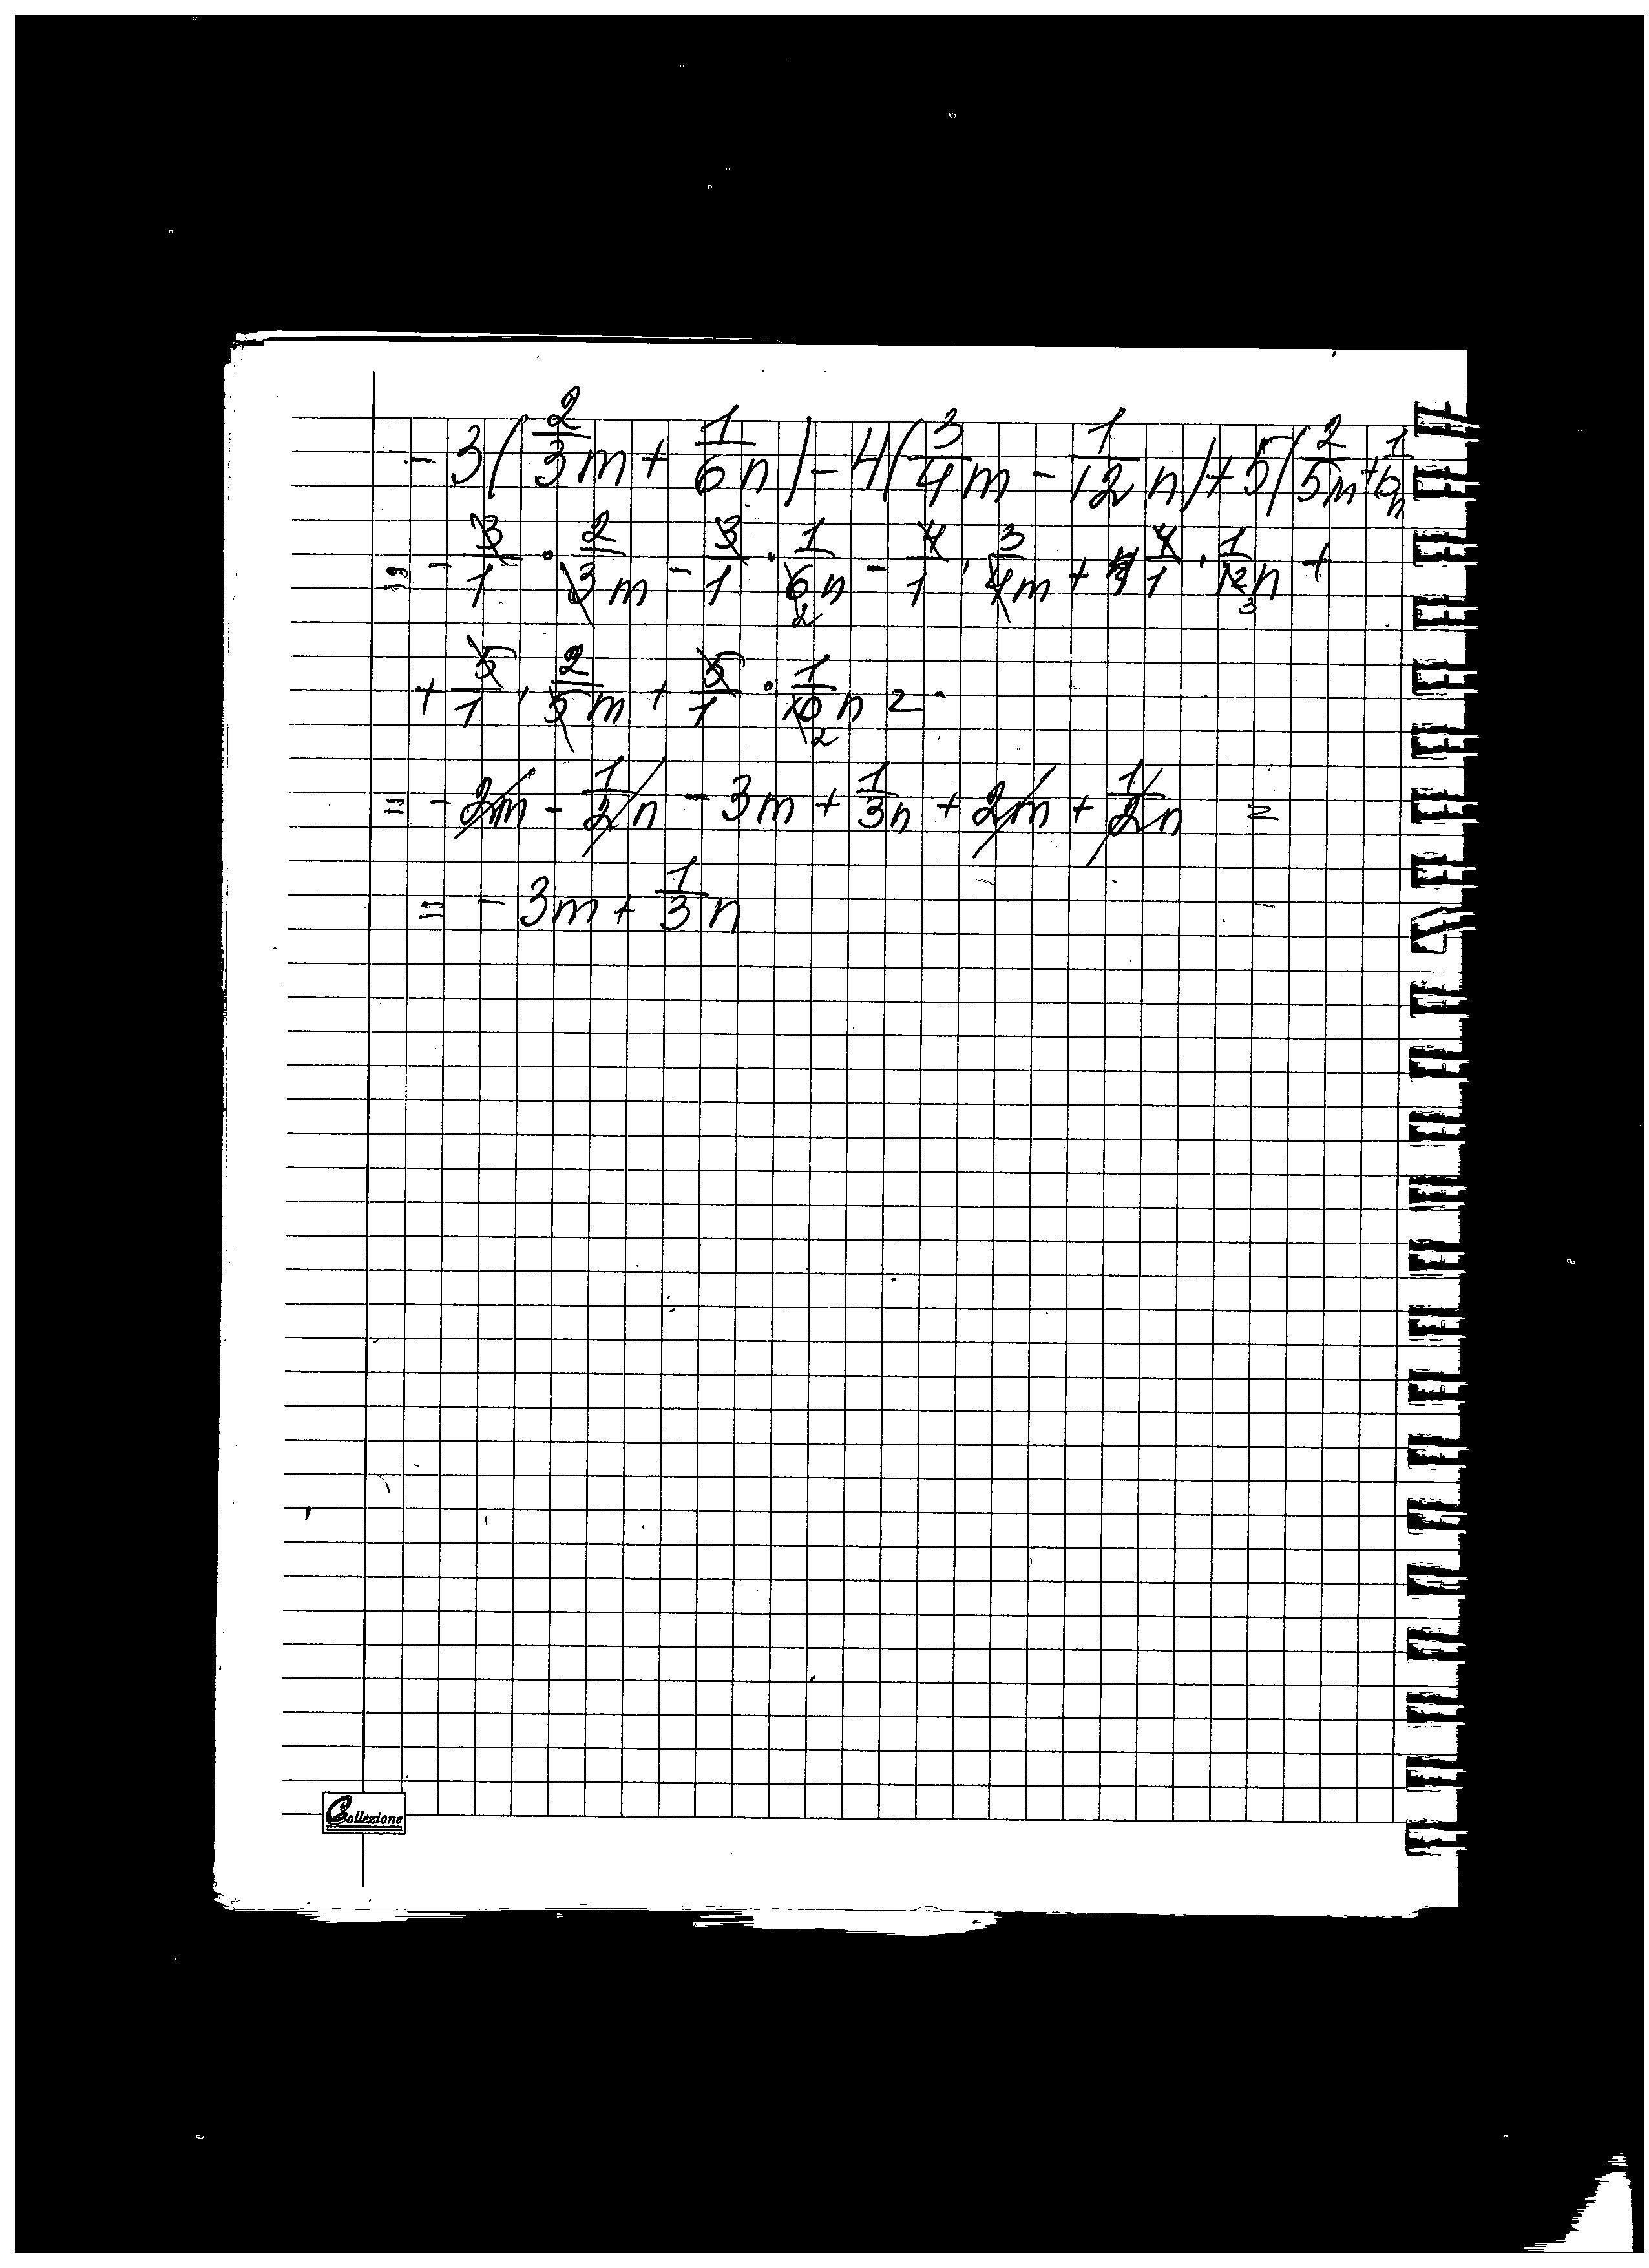 - 3(2/3 m + 1/6 n) - 4(3/4 m - 1/12 n) + 5(2/5 m + 1/10 n
= - 3/1 · 2/3 m - 3/1 · 1/6 n - 4/1 · 3/4 m + 4/1 · 1/12 n +
+ 5/1 · 2/5 m + 5/1 · 1/10 n =
= - 2m - 1/2 n - 3m + 1/3 n + 2m + 1/2 n =
= - 3m + 1/3 n
Collezione